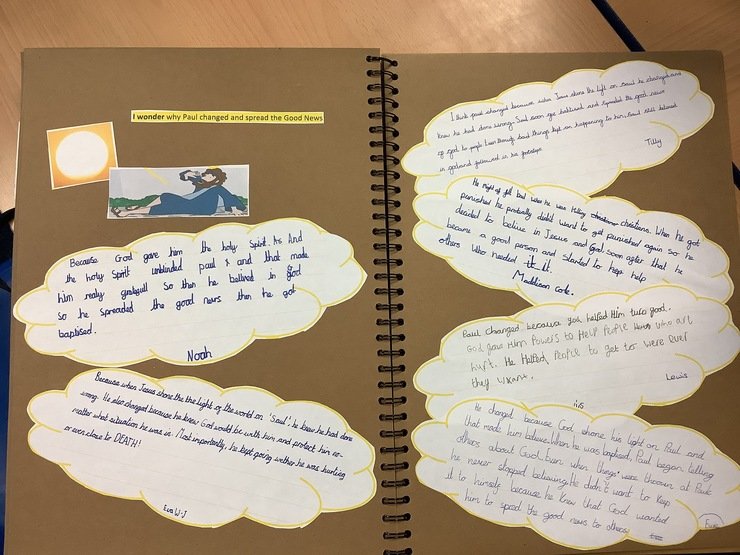 I wonder why Paul changed and spread the Good News
Because God gave him the holy Spirit. As And
the holy Spirit unblinded paul & and that made
him really gratefull So then he belived in god
so he spreaded the good news then he got
baptised.
Noah
Because when Jesus shone the the light of the world on 'Saul', he knew he had done
wrong. He also changed because he knew God would be with him and protect him no-
matter what situation he was in. Most importantly, he kept going wether he was hunting
or even close to DEATH!
Eva W-J
I think paul changed because when Jesus shone the light on Saul he changed and
knew he had done wrong. Saul soon got babtised and spreaded the good news
of god to people Even though bad things kept on happening to him Saul still belived
in god and followed in his footsteps
Tilly
He might of felt bad when he was killing christians. When he got
punished he probally didnt want to get punished again so he
decided to believe in Jesus and God soon after that he
became a good person and started to help
others who needed it.
Maddison cole.
Paul changed because god helped Him turo good.
God gave Him Powers to HElP PEoPlE who art
hurt. He HElPEd PEoPlE to get to were ever
they want.
Lewis
He changed because God shone his light on Paul and
that made him believe. When he was baptised, Paul began telling
others about God. Even when things were thrown at Paul
he never stopped believeing. He didn't want to keep
it to himself because he knew that God wanted
him to spread the good news to others.